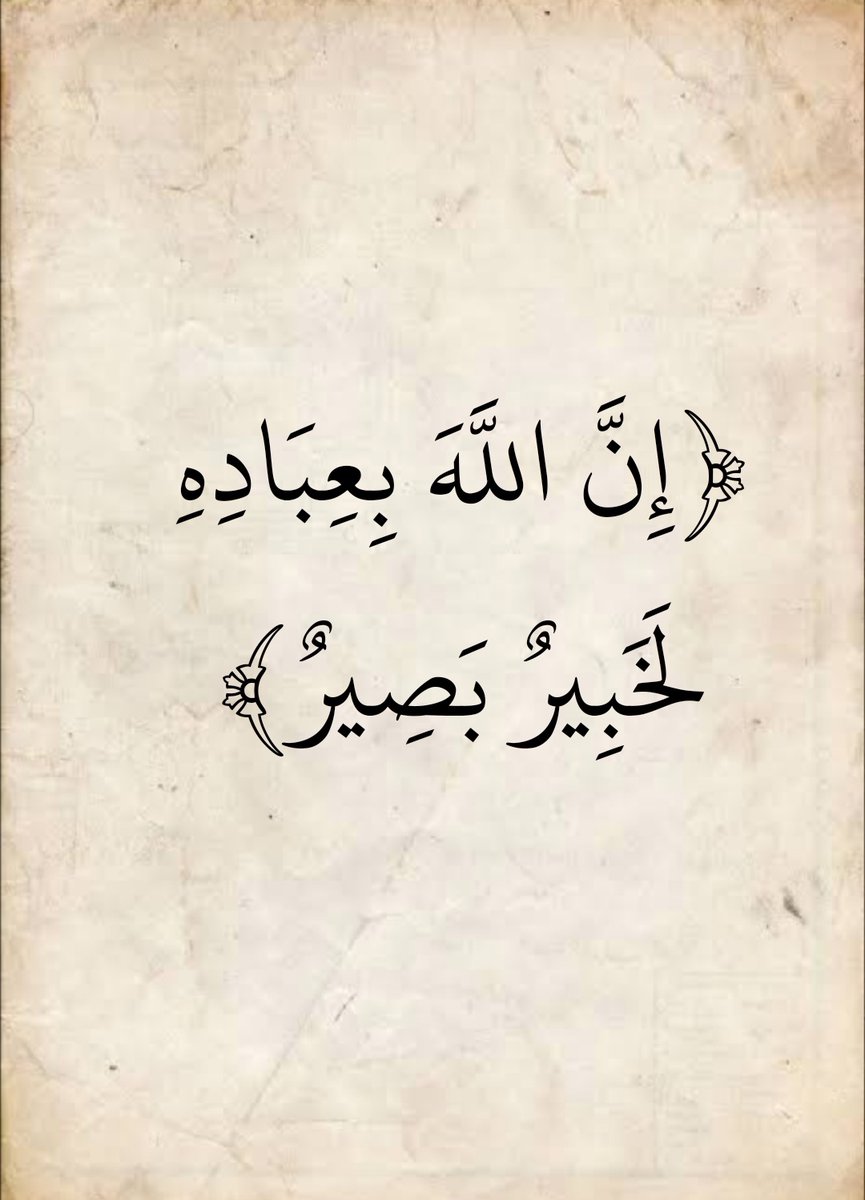 ﴿إِنَّ اللَّهَ بِعِبَادِهِ
لَخَبِيرٌ بَصِيرٌ﴾